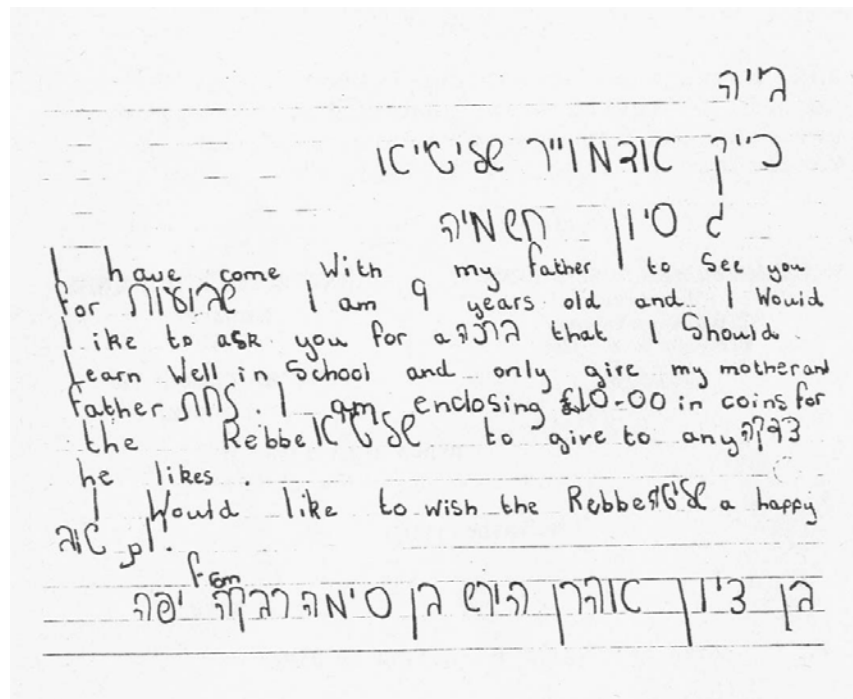 ב״ה
כ״ק אדמו״ר שליט״א
ג סיון תשמ״ה
I have come With my father to See you
for שבועות I am 9 years old and. I Would
Like to ask you for a ברכה that I Should
Learn Well in School and only give my mother and
father נחת. I am enclosing £10-00 in coins for
the Rebbe שליט״א to give to any צדקה
he likes.
I Would like to wish the Rebbe שליט״א a happy
יום טוב.
from
בן ציון אהרן הירש בן סימה רבקה יפה